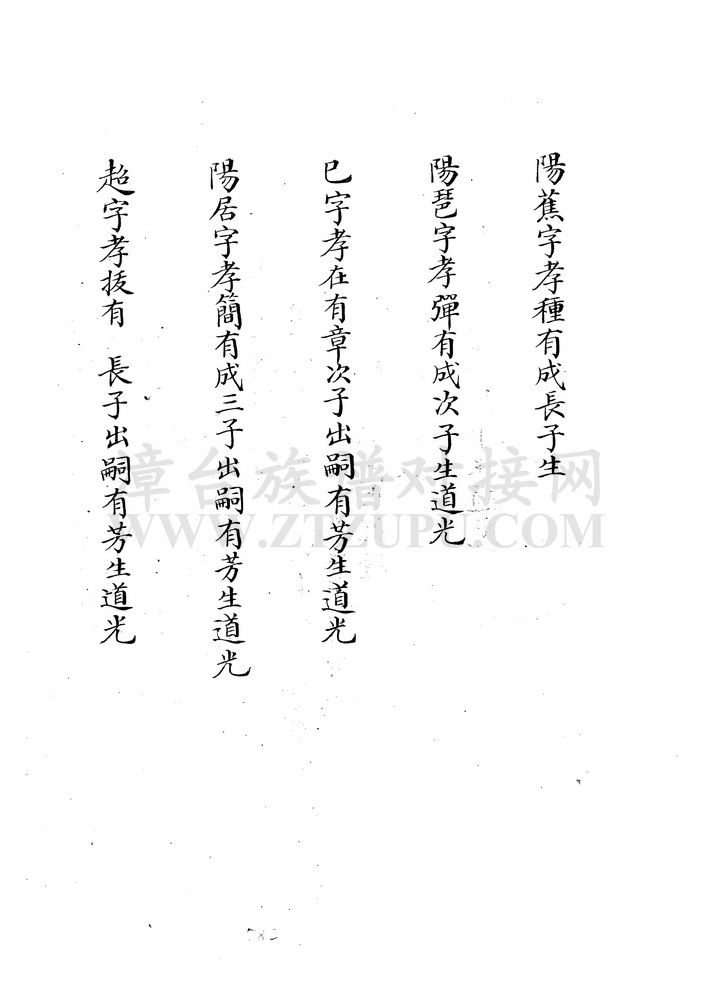 陽蕉字孝種有成長子生
陽琶字孝彈有成次子生道光
巳字孝在有章次子出嗣有芳生道光
陽居字孝簡有成三子出嗣有芳生道光
超字孝拔有 長子出嗣有芳生道光
章台族谱对接网
WWW.ZTZUPU.COM